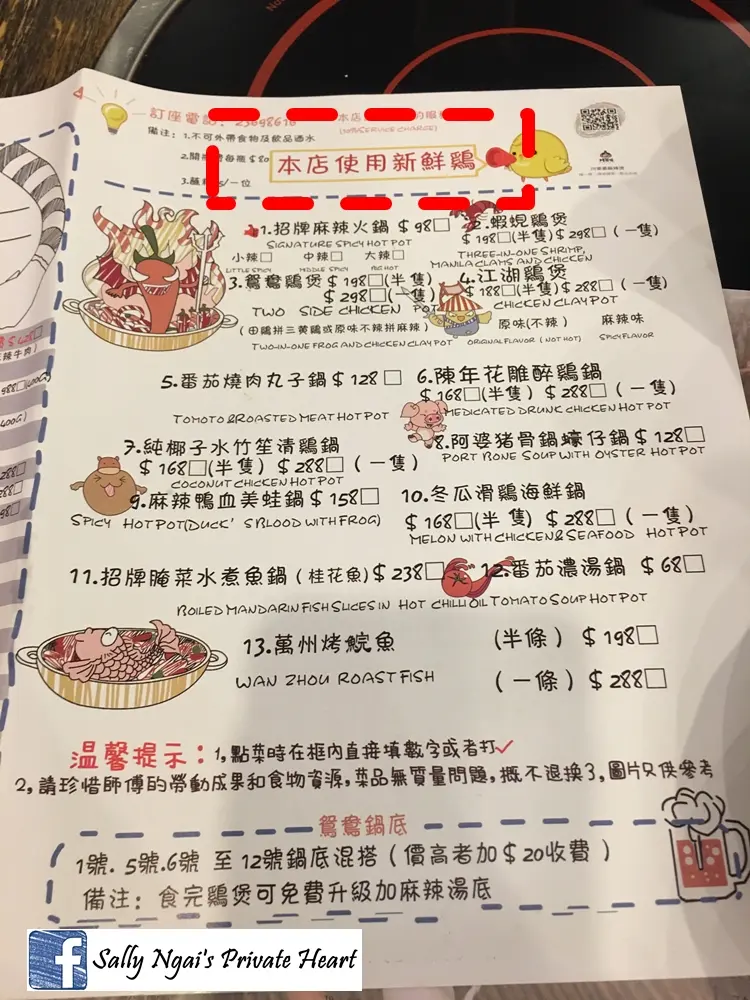 訂座電話：23698616
備注：1.不可外帶食物及飲品酒水
(10%SERVICE CHARGE)
本店使用新鮮鷄
1.招牌麻辣火鍋 $98□
SIGNATURE SPICY HOT POT
小辣□ 中辣□ 大辣□
LITTLE SPICY MIDDLE SPICY BIG HOT
2.蝦蜆鷄煲
$198□(半隻)$298□(一隻)
THREE-IN-ONE SHRIMP,
MANILA CLAMS AND CHICKEN
3.鴛鴦鷄煲 $198□(半隻)
$298□(一隻)
TWO SIDE CHICKEN POT
(田鷄拼三黄鷄或原味不辣拼麻辣)
TWO-IN-ONE FROG AND CHICKEN CLAY POT
4.江湖鷄煲
$188□(半隻)$288□(一隻)
CHICKEN CLAY POT
原味(不辣) 麻辣味
ORIGINAL FLAVOR (NOT HOT) SPICY FLAVOR
5.番茄燒肉丸子鍋 $128□
TOMOTO & ROASTED MEAT HOT POT
6.陳年花雕醉鷄鍋
$168□(半隻) $288□(一隻)
MEDICATED DRUNK CHICKEN HOT POT
7.純椰子水竹笙清鷄鍋
$168□(半隻) $288□(一隻)
COCONUT CHICKEN HOT POT
8.阿婆猪骨鍋蠔仔鍋 $128□
PORT BONE SOUP WITH OYSTER HOT POT
9.麻辣鴨血美蛙鍋 $158□
SPICY HOT POT(DUCK'S BLOOD WITH FROG)
10.冬瓜滑鷄海鮮鍋
$168□(半隻) $288□(一隻)
MELON WITH CHICKEN & SEAFOOD HOT POT
11.招牌腌菜水煮魚鍋(桂花魚)$238□
12.番茄濃湯鍋 $68□
BOILED MANDARIN FISH SLICES IN HOT CHILLI OIL TOMATO SOUP HOT POT
13.萬州烤鯇魚 (半條) $198□
WAN ZHOU ROAST FISH (一條) $288□
温馨提示：1,點菜時在框内直接填數字或者打✓
2,請珍惜師傅的勞動成果和食物資源,菜品無質量問題,概不退换3,圖片只供參考
鴛鴦鍋底
1號.5號.6號 至 12號鍋底混搭(價高者加$20收費)
備注：食完鷄煲可免費升級加麻辣湯底
Sally Ngai's Private Heart